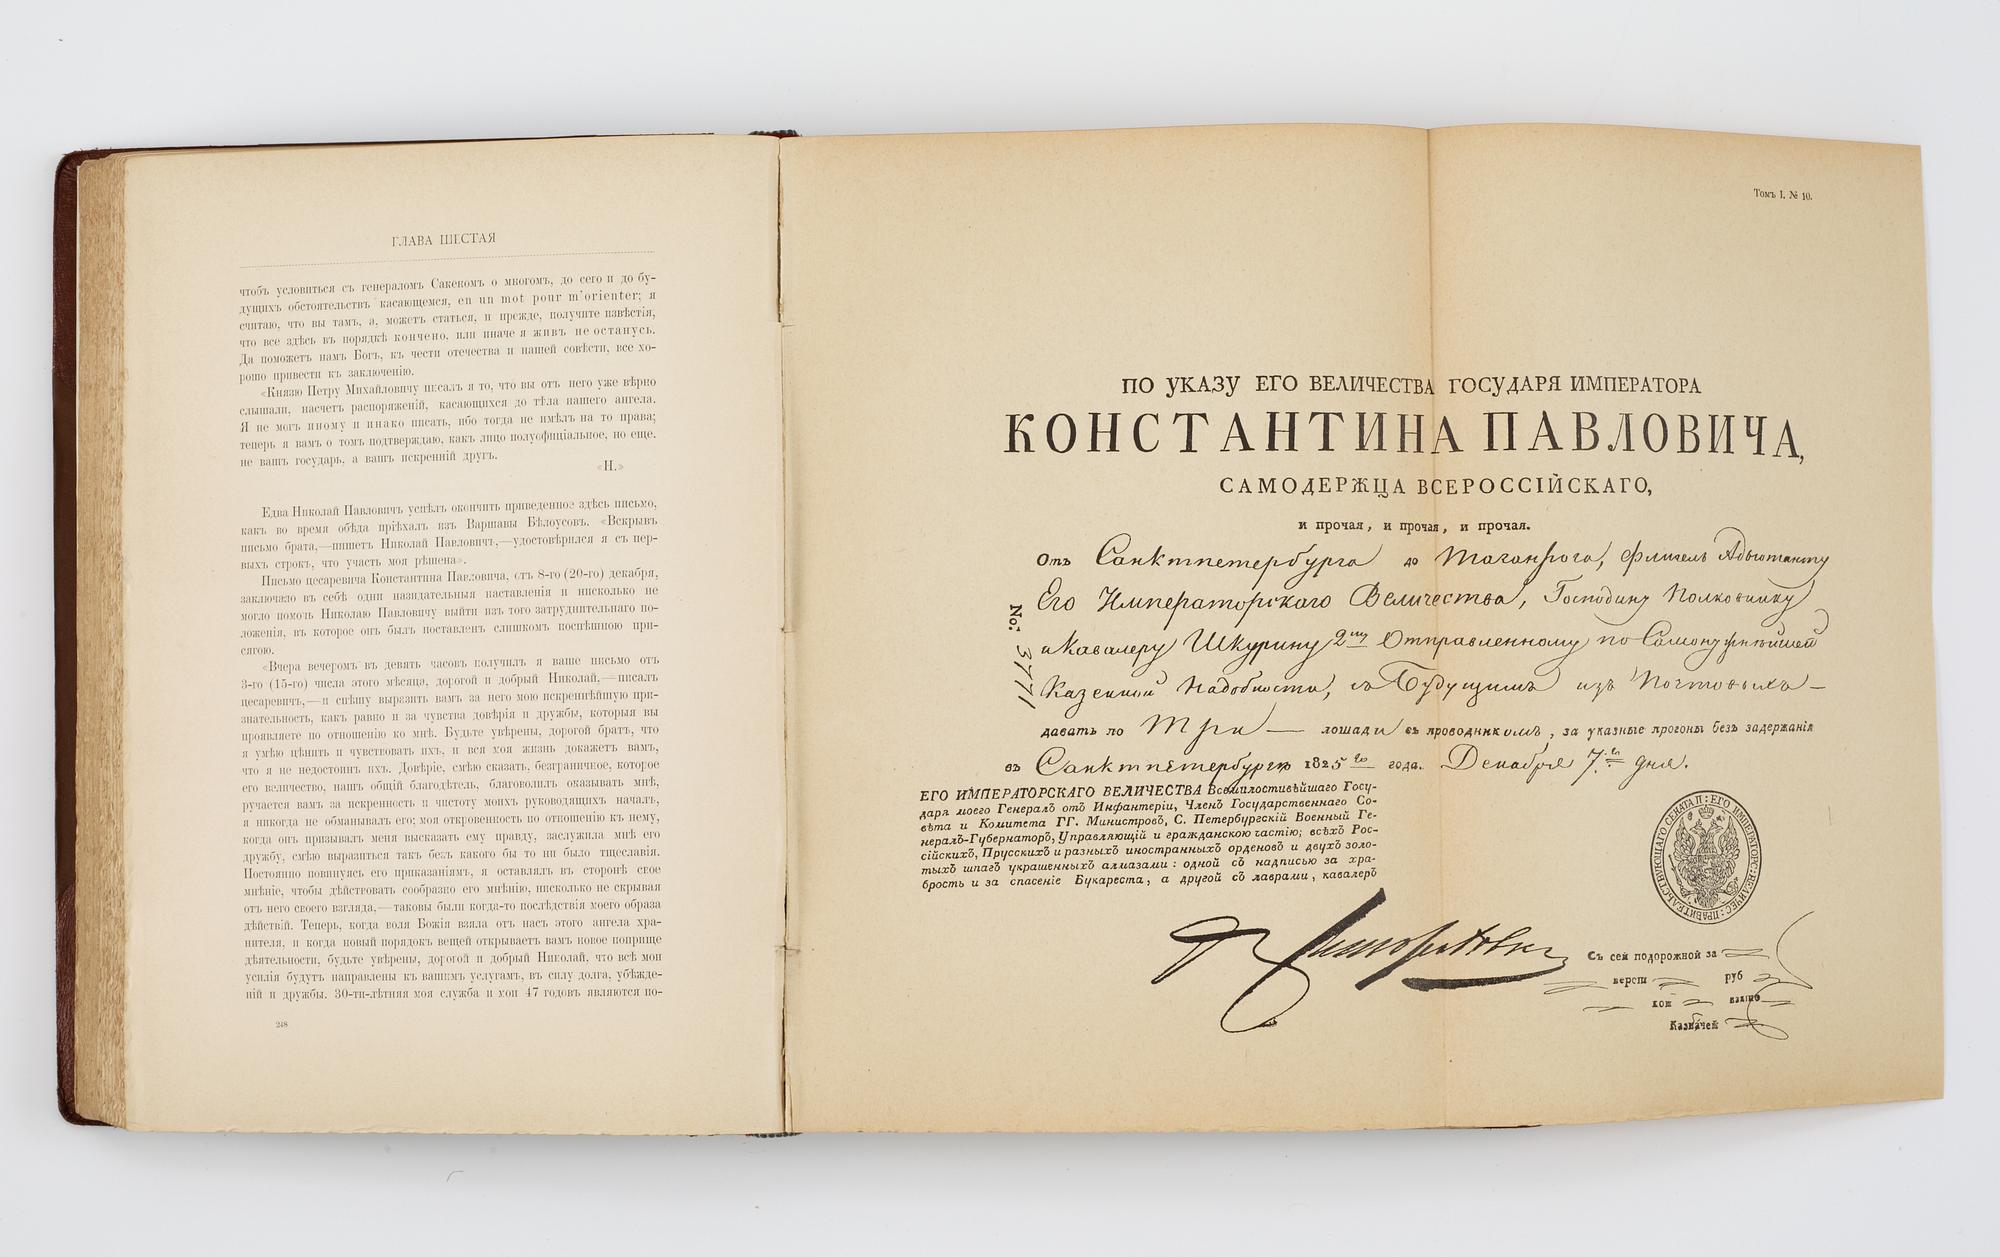 ГЛАВА ШЕСТАЯ
чтобъ условиться съ генераломъ Сакеномъ о многомъ, до сего и до бу-
дущихъ обстоятельствъ касающемся, en un mot pour m'orienter; я
считаю, что вы тамъ, а, можетъ статься, и прежде, получите извѣстія,
что все здѣсь въ порядкѣ кончено, или иначе я живъ не останусь.
Да поможетъ намъ Богъ, къ чести отечества и нашей совѣсти, все хо-
рошо привести къ заключенію.
«Князю Петру Михайловичу писалъ я то, что вы отъ него уже вѣрно
слышали, насчетъ распоряженій, касающихся до тѣла нашего ангела.
Я не могъ иному и инако писать, ибо тогда не имѣлъ на то права;
теперь я вамъ о томъ подтверждаю, какъ лицо полуофиціальное, но еще.
не вашъ государь, а вашъ искренній другъ.
«Н.»
Едва Николай Павловичъ успѣлъ окончить приведенное здѣсь письмо,
какъ во время обѣда пріѣхалъ изъ Варшавы Бѣлоусовъ. «Вскрывъ
письмо брата,—пишетъ Николай Павловичъ,—удостовѣрился я съ пер-
выхъ строкъ, что участь моя рѣшена».
Письмо цесаревича Константина Павловича, отъ 8-го (20-го) декабря,
заключало въ себѣ одни назидательныя наставленія и нисколько не
могло помочь Николаю Павловичу выйти изъ того затруднительнаго по-
ложенія, въ которое онъ былъ поставленъ слишкомъ поспѣшною при-
сягою.
«Вчера вечеромъ въ девять часовъ получилъ я ваше письмо отъ
3-го (15-го) числа этого мѣсяца, дорогой и добрый Николай,—писалъ
цесаревичъ,—и спѣшу выразить вамъ за него мою искреннѣйшую при-
знательность, какъ равно и за чувства довѣрія и дружбы, которыя вы
проявляете по отношенію ко мнѣ. Будьте увѣрены, дорогой братъ, что
я умѣю цѣнить и чувствовать ихъ, и вся моя жизнь докажетъ вамъ,
что я не недостоинъ ихъ. Довѣріе, смѣю сказать, безграничное, которое
его величество, нашъ общій благодѣтель, благоволилъ оказывать мнѣ,
ручается вамъ за искренность и чистоту моихъ руководящихъ началъ,
я никогда не обманывалъ его; моя откровенность по отношенію къ нему,
когда онъ призывалъ меня высказать ему правду, заслужила мнѣ его
дружбу, смѣю выразиться такъ безъ какого бы то ни было тщеславія.
Постоянно повинуясь его приказаніямъ, я оставлялъ въ сторонѣ свое
мнѣніе, чтобы дѣйствовать сообразно его мнѣнію, нисколько не скрывая
отъ него своего взгляда,—таковы были когда-то послѣдствія моего образа
дѣйствій. Теперь, когда воля Божія взяла отъ насъ этого ангела хра-
нителя, и когда новый порядокъ вещей открываетъ вамъ новое поприще
дѣятельности, будьте увѣрены, дорогой и добрый Николай, что всѣ мои
усилія будутъ направлены къ вашимъ услугамъ, въ силу долга, убѣжде-
ній и дружбы. 30-ти-лѣтняя моя служба и мои 47 годовъ являются по-
248
Томъ I, № 10.
ПО УКАЗУ ЕГО ВЕЛИЧЕСТВА ГОСУДАРЯ ИМПЕРАТОРА
КОНСТАНТИНА ПАВЛОВИЧА,
САМОДЕРЖЦА ВСЕРОССІЙСКАГО,
и прочая, и прочая, и прочая.
Отъ Санктпетербурга до Таганрога, Флигель Адьютанту
Его Императорскаго Величества, Господину Полковнику
и Кавалеру Шкурину 2му Отправленному по Самонужнѣйшей
Казенной Надобности, съ Будущимъ изъ Почтовыхъ—
давать по Три — лошади съ проводникомъ, за указные прогоны безъ задержанія
въ Санктпетербургѣ 1825го года. Декабря 7го дня.
No: 3771
ЕГО ИМПЕРАТОРСКАГО ВЕЛИЧЕСТВА Всемилостивѣйшаго Госу-
даря моего Генералъ отъ Инфантеріи, Членъ Государственнаго Со-
вѣта и Комитета ГГ. Министровъ, С. Петербургскій Военный Ге-
нералъ-Губернаторъ, Управляющій и гражданскою частію; всѣхъ Рос-
сійскихъ, Прусскихъ и разныхъ иностранныхъ орденовъ и двухъ золо-
тыхъ шпагъ украшенныхъ алмазами: одной съ надписью за хра-
брость и за спасеніе Букареста, а другой съ лаврами, кавалеръ
Г. Милорадовичъ
ПЕЧАТЬ ЕГО ИМПЕРАТОРС: ВЕЛИЧЕС: ПРАВИТЕЛЬСТВУЮЩАГО СЕНАТА
Съ сей подорожной за
версты руб
коп взято
Казначей